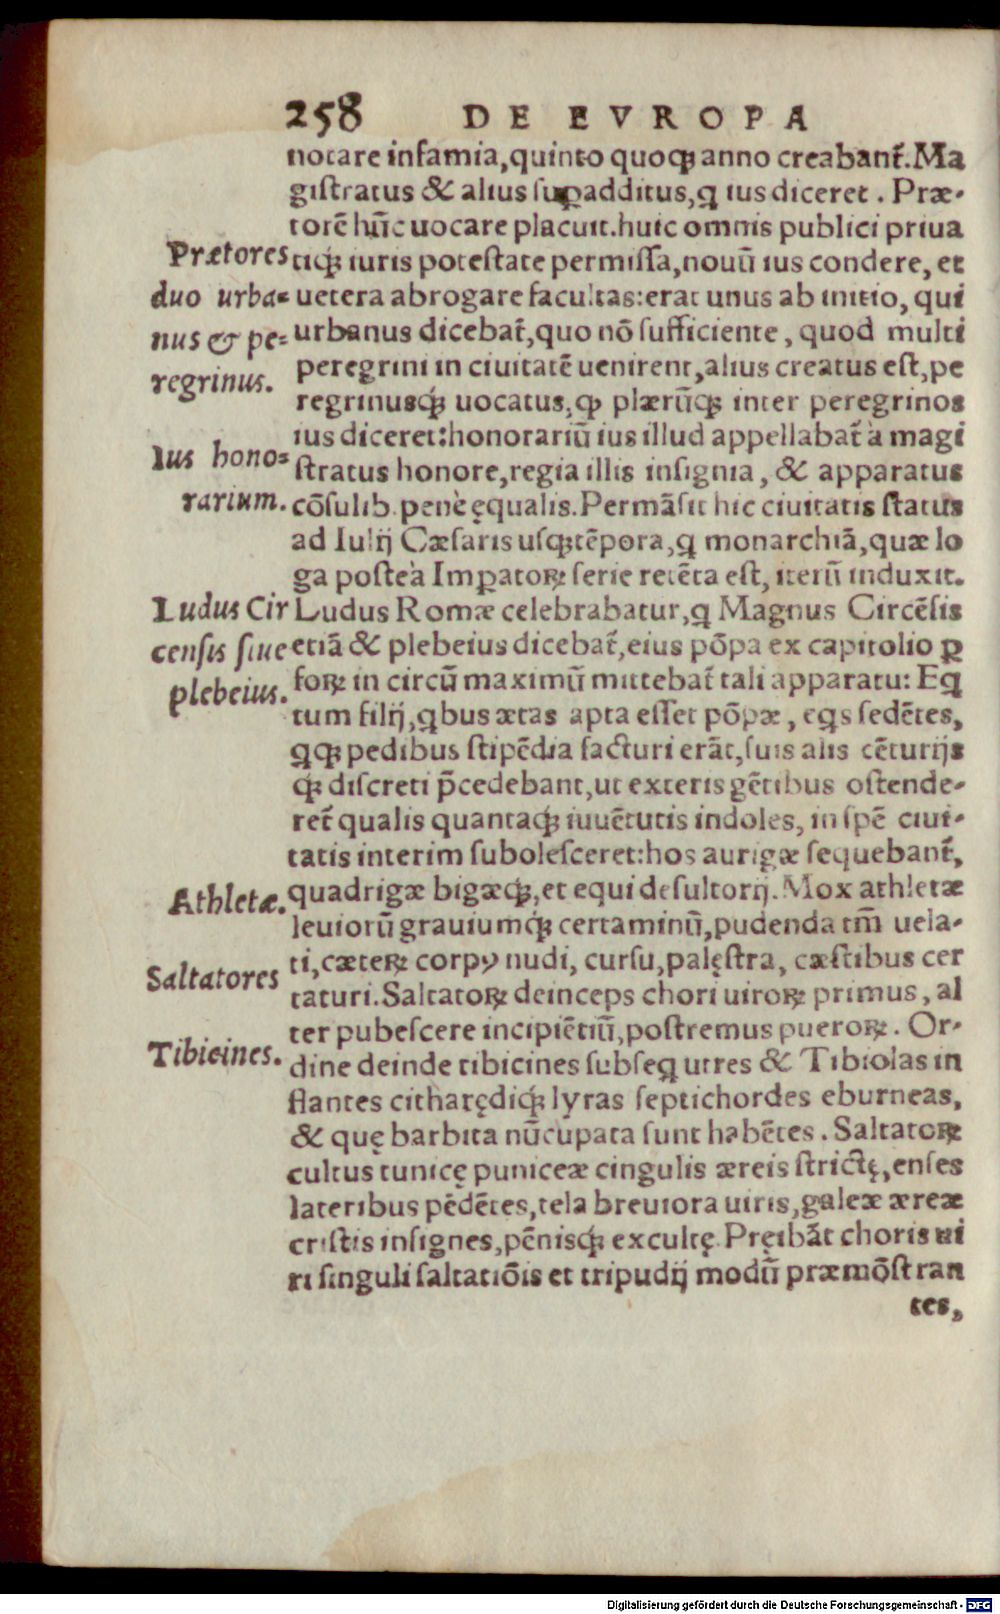 258 DE EVROPA
notare infamia, quinto quoqꝫ anno creabant᷑. Ma
gistratus & alius suꝑadditus, ꝗ ius diceret. Præ-
torē hūc uocare placuit. huic omnis publici priua
Prætores
tiqꝫ iuris potestate permissa, nouū ius condere, et
duo urba-
uetera abrogare facultas: erat unus ab initio, qui
nus & pe-
urbanus dicebat᷑, quo nō sufficiente, quod multi
regrinus.
peregrini in ciuitatē uenirent, alius creatus est, pe
regrinusqꝫ uocatus, ꝙ plærūqꝫ inter peregrinos
ius diceret: honorariū ius illud appellabat᷑ à magi
Ius hono-
stratus honore, regia illis insignia, & apparatus
rarium.
cōsulib. penè ęqualis. Permāsit hic ciuitatis status
ad Iulij Cæsaris usqꝫ tēpora, ꝗ monarchiā, quæ lo
ga posteà Imꝑatoꝝ serie retēta est, iterū induxit.
Ludus Cir
Ludus Romæ celebrabatur, ꝗ Magnus Circēsis
censis siue
etiā & plebeius dicebat᷑, eius pōpa ex capitolio ꝑ
plebeius.
foꝝ in circū maximū mittebat᷑ tali apparatu: Eꝗ
tum filij, ꝗbus ætas apta esset pōpæ, eꝗs sedētes,
ꝗqꝫ pedibus stipēdia facturi erāt, suis alis cēturijs
qꝫ discreti p̄cedebant, ut exteris gētibus ostende-
ret᷑ qualis quantaqꝫ iuuētutis indoles, in spē ciui-
tatis interim subolesceret: hos aurigæ sequebant᷑,
Athletæ.
quadrigæ bigæqꝫ, et equi desultorij. Mox athletæ
leuiorū grauiumqꝫ certaminū, pudenda tm̄ uela-
Saltatores
ti, cæteꝝ corpꝰ nudi, cursu, palęstra, cæstibus cer
taturi. Saltatoꝝ deinceps chori uiroꝝ primus, al
ter pubescere incipiētiū, postremus pueroꝝ. Or-
Tibicines.
dine deinde tibicines subseꝗ utres & Tibiolas in
flantes citharędiqꝫ lyras septichordes eburneas,
& quę barbita nūcupata sunt habētes. Saltatoꝝ
cultus tunicę puniceæ cingulis æreis strictę, enses
lateribus pēdētes, tela breuiora uiris, galeæ æreæ
cristis insignes, pēnisqꝫ excultę. Pręibāt choris ui
ri singuli saltatiōis et tripudij modū præmōstran
tes,
Digitalisierung gefördert durch die Deutsche Forschungsgemeinschaft - DFG